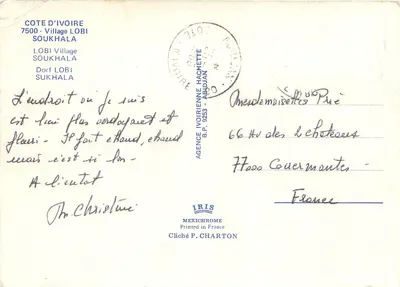 COTE D'IVOIRE
7500 - Village LOBI
SOUKHALA
LOBI Village
SOUKHALA
Dorf LOBI
SUKHALA
L'endroit où je suis
est bien plus verdoyant et
fleuri - Il fait chaud, chaud
mais c'est si bon -
A bientôt
Christine
AGENCE IVOIRIENNE HACHETTE
B.P. 9253 - ABIDJAN
Mesdemoiselles Prié
66 Av des
77000
France
IRIS
MEXICHROME
Printed in France
Cliché P. CHARTON